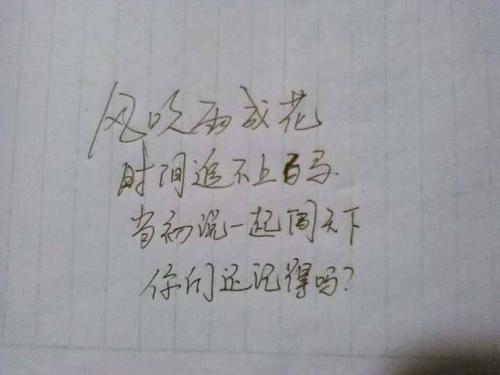 风吹雨成花
时间追不上白马
当初说一起闯天下
你们还记得吗?